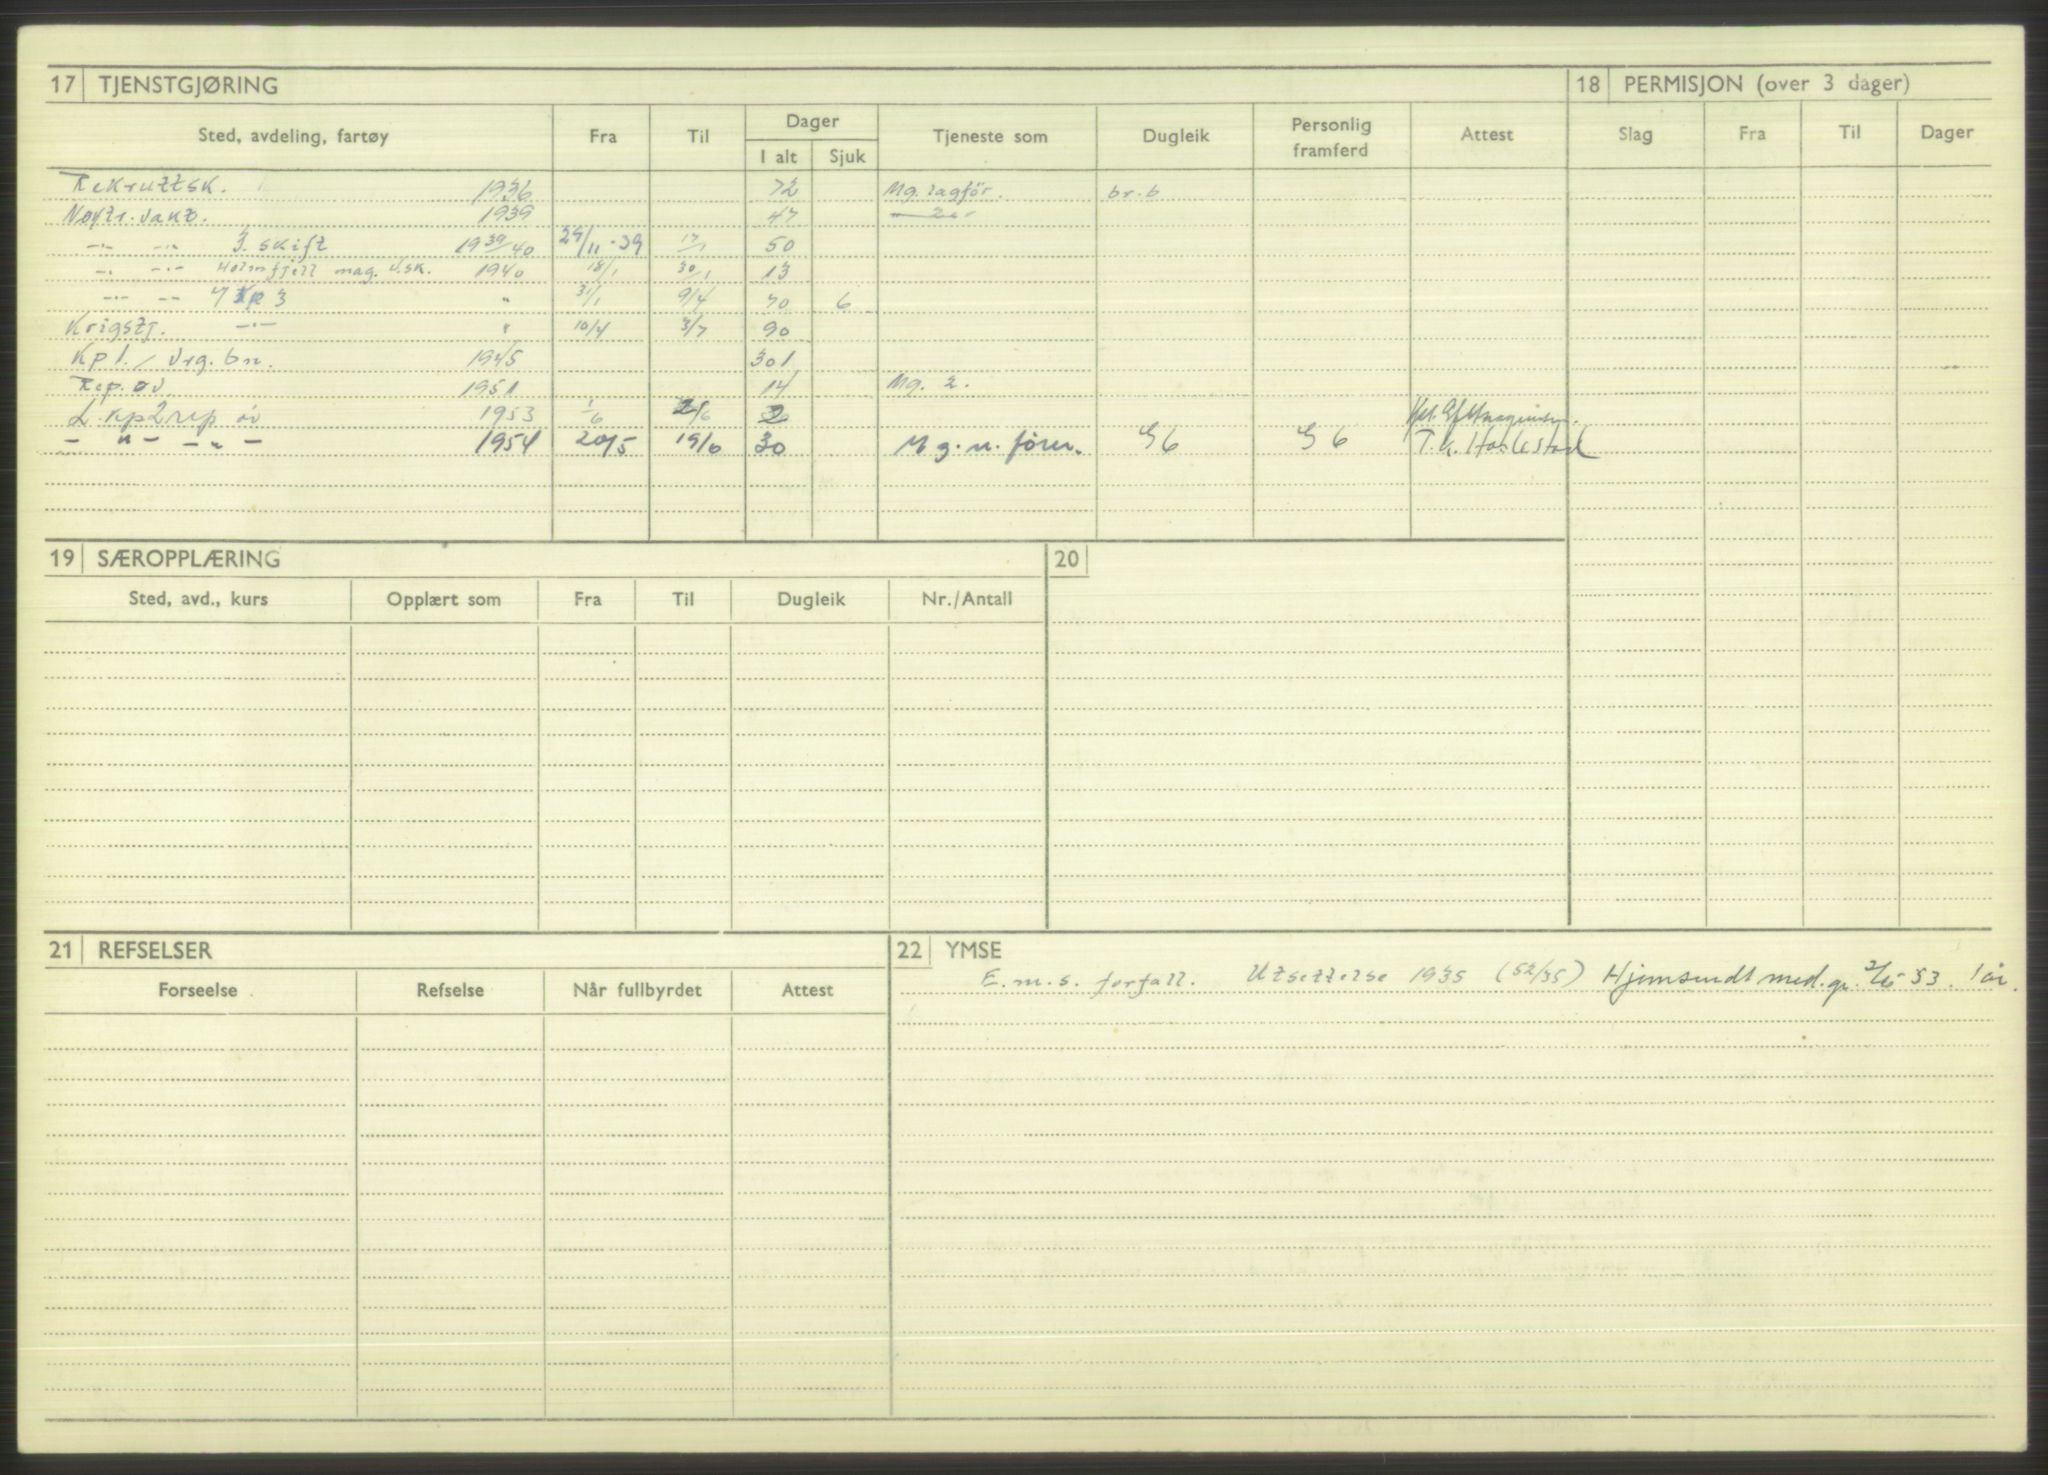 17 TJENSTGJØRING
18 PERMISJON (over 3 dager)
Sted, avdeling, fartøy Fra Til Dager Tjeneste som Dugleik Personlig framferd Attest Slag Fra Til Dager
I alt Sjuk
Rekruttsk. 1936 72 Mg. lagför. br.b
Nøytr. vakt. 1939 47
—"— —"— 3. skift 1939/40 29/11-39 17/1 50
—"— —"— Holmfjell mag. v.sk. 1940 18/1 30/1 13
—"— —"— Kp 3 " 31/1 9/4 70 6
Krigstj. —"— " 10/4 3/7 90
Kpl./ Vrg. bn. 1945 301
Rep. øv. 1951 14 Mg. 2.
L. kp2 rep øv 1953 1/6 2/6 2
— " — — " — 1954 20/5 19/6 30 Mg. n. fører. G6 G6 T. K.
19 SÆROPPLÆRING
20
Sted, avd., kurs Opplært som Fra Til Dugleik Nr./Antall
21 REFSELSER
22 YMSE
Forseelse Refselse Når fullbyrdet Attest
E.m.s. forfall. Utsettelse 1935 (52/35) Hjemsendt med. gr. 2/6-53. 1 år.